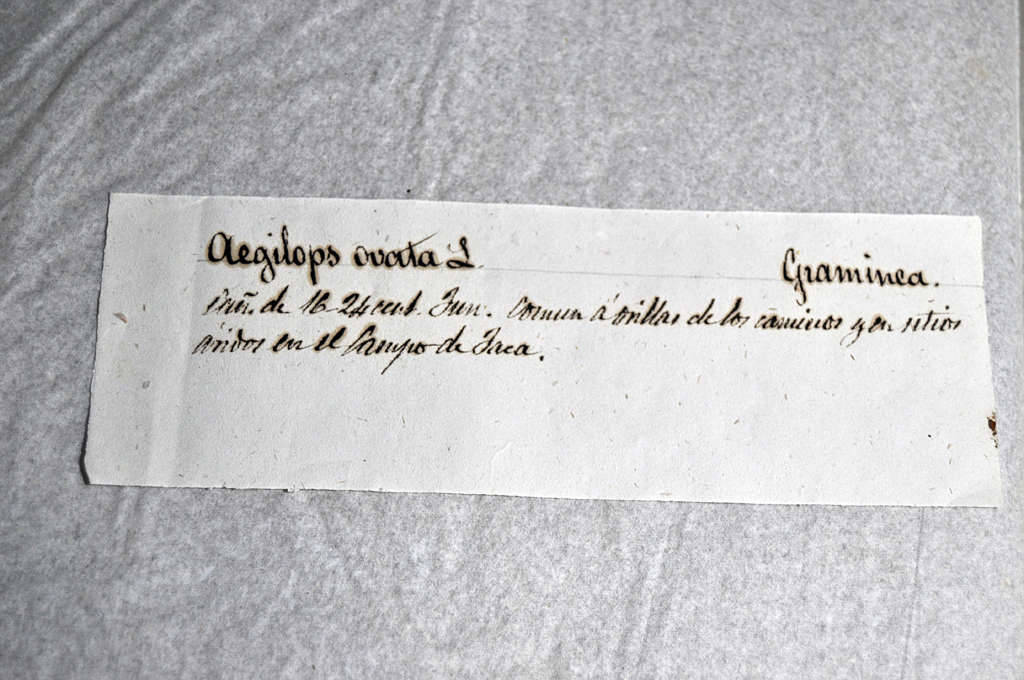 Aegilops ovata L. Graminea.
Cañ. de 16-24 cent. Jun. Comun á orillas de los caminos y en sitios
áridos en el Campo de Jaca.